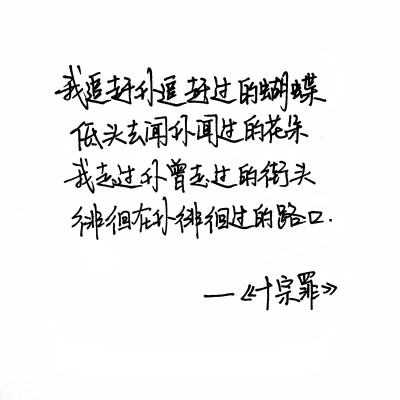 我追赶你追赶过的蝴蝶
低头去闻你闻过的花朵
我走过你曾走过的街头
徘徊在你徘徊过的路口.
—《十宗罪》